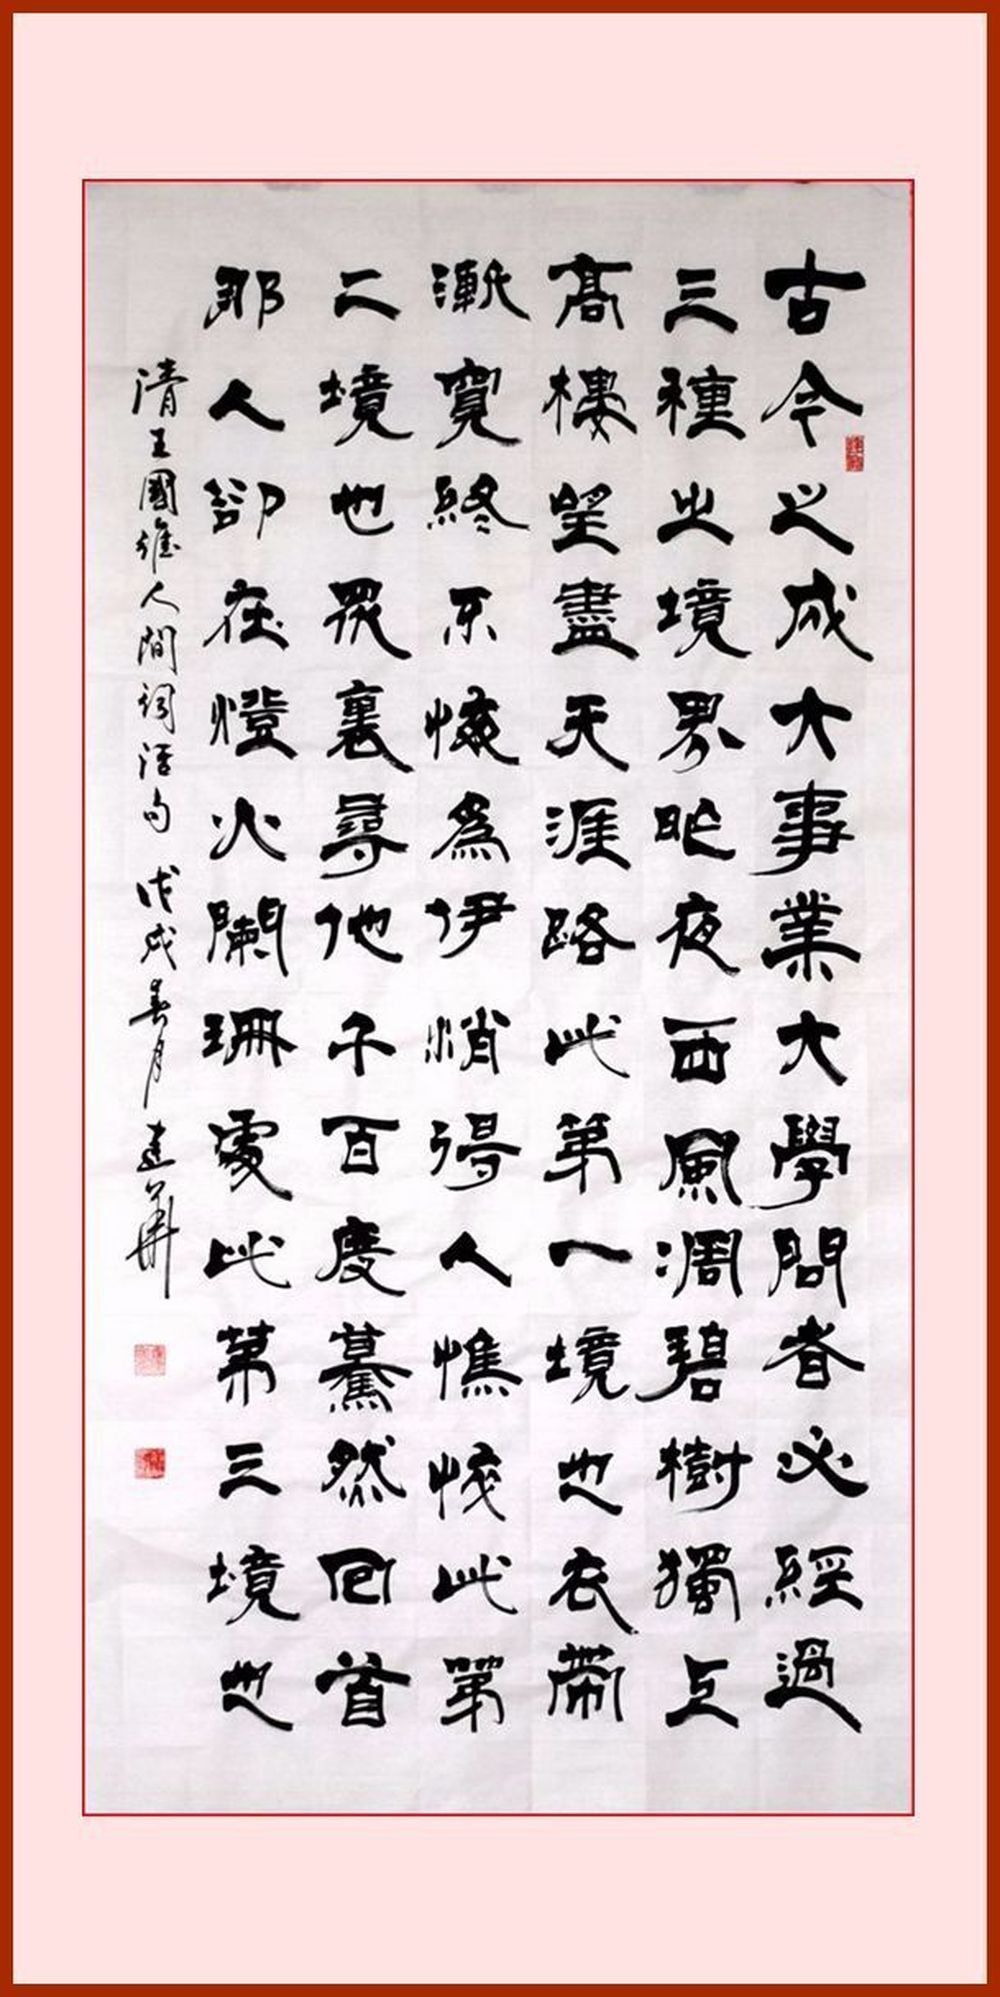 古今之成大事業大學問者必經過
三種之境界昨夜西風凋碧樹獨上
高樓望盡天涯路此第一境也衣帶
漸寬終不悔為伊消得人憔悴此第
二境也眾裏尋他千百度驀然回首
那人卻在燈火闌珊處此第三境也
清王國維人間詞話句 戊戌春月 建華